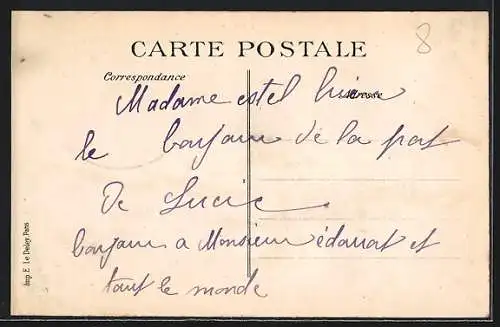 CARTE POSTALE
8
Correspondance
Adresse
Madame estel
le bonjour de la part
de Lucie
bonjour a Monsieur édouat et
tout le monde
Imp. E. Le Deley, Paris